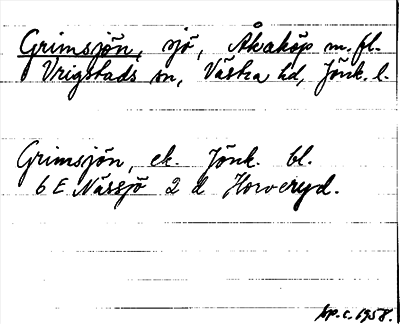 Grimsjön, sjö, Åkaköp m. fl.
Vrigstads sn, Västra hd, Jönk. l.
Grimsjön, ek. Jönk. bl.
6 E Nässjö 2 d Horveryd.
sp. c. 1958.